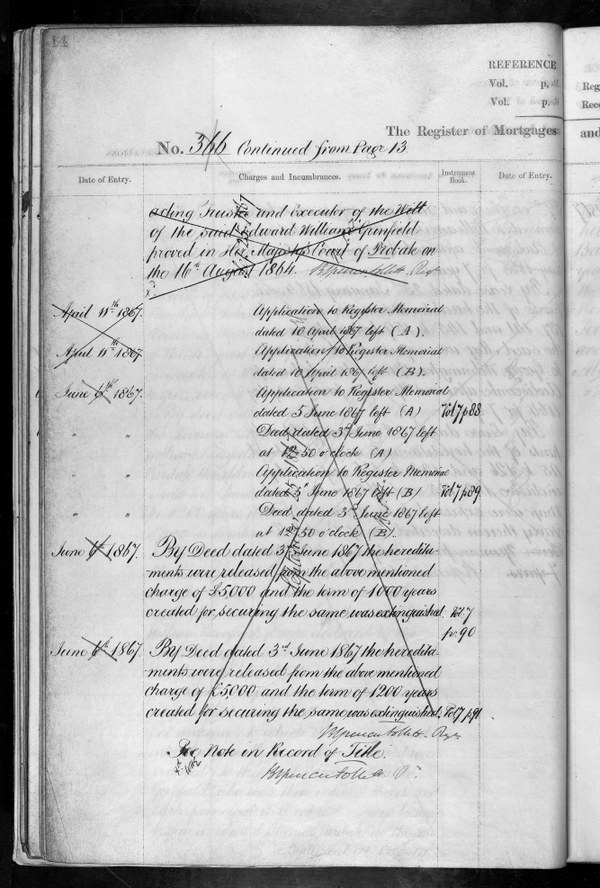 14
REFERENCE
Vol. p.
Vol. p.
The Register of Mortgages
No. 366 Continued from Page 13
Date of Entry. Charges and Incumbrances. Instrument Book. Date of Entry.
acting Trustee and Executor of the Will
of the said Edward William Grinfield
proved in Her Majestys Court of Probate on
the 16th August 1864. BSpencer Follett Regr
April 11th 1867. Application to Register Memorial
dated 10 April 1867 left (A).
April 11th 1867. Application to Register Memorial
dated 10 April 1867 left (B).
June 6th 1867. Application to Register Memorial
dated 5 June 1867 left (A) Vol 7 p 88
" " Deed dated 3rd June 1867 left
at 12.50 o'clock (A)
Application to Register Memorial
dated 5 June 1867 left (B) Vol 7 p 89
" " Deed dated 3rd June 1867 left
at 12.50 o'clock (B).
June 6th 1867. By Deed dated 3rd June 1867 the heredita-
-ments were released from the above mentioned
charge of £5,000 and the term of 1000 years
created for securing the same was extinguished Vol. 7
p. 90
June 6th 1867 By Deed dated 3rd June 1867 the heredita-
-ments were released from the above mentioned
charge of £5000 and the term of 1200 years
created for securing the same was extinguished. Vol 7 p 91
BSpencer Follett Regr
See Note in Record of Title.
BSpencer Follett Rr.
Reg
Rece
and